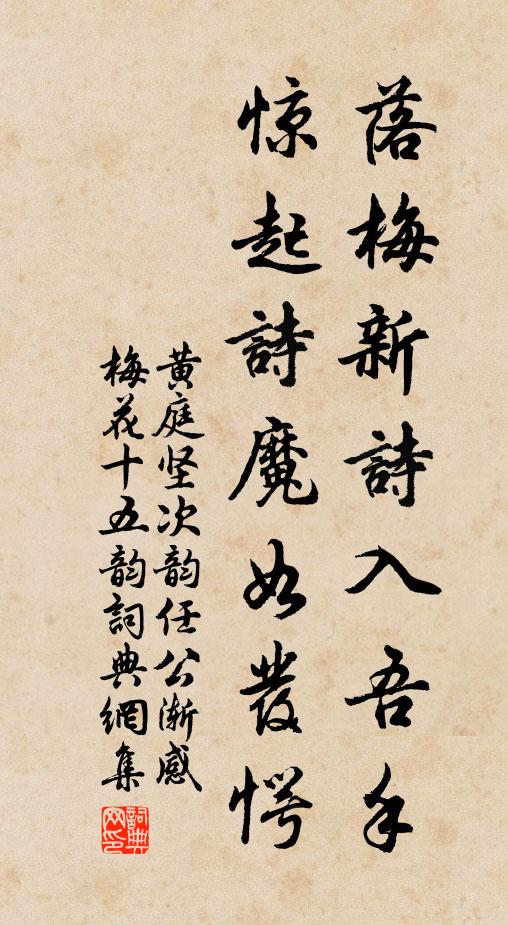 落梅新詩入吾手
惊起詩魔如發愕
黄庭坚次韵任公渐感
梅花十五韵詞典網集
詞典网印